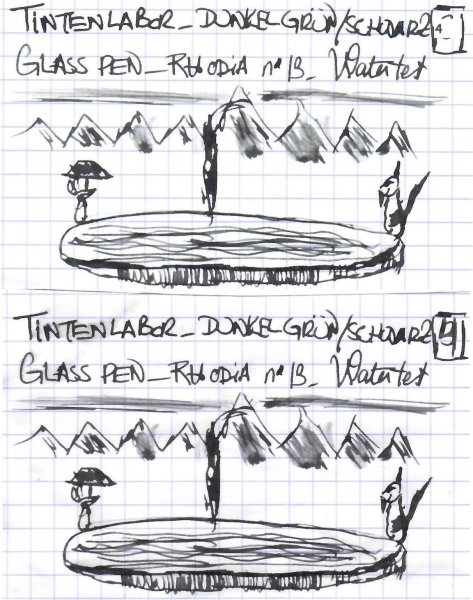 TINTENLABOR_ DUNKELGRÜN/SCHWARZ
GLASS PEN_ RHODIA n° 13_ Watertest
TINTENLABOR_ DUNKELGRÜN/SCHWARZ
GLASS PEN_ RHODIA n° 13_ Watertest